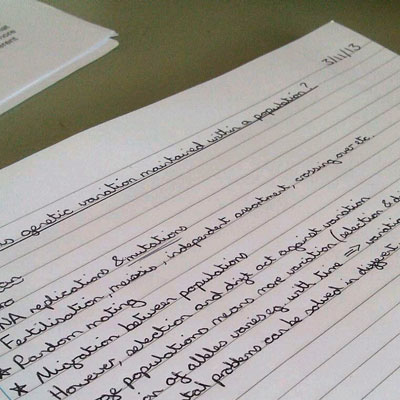 3/11/13
s genetic variation maintained within a population?
NA replications & mutations
Fertilisation, meiosis, independent assortment, crossing over etc.
* Random mating
* Migration between populations
However, selection and drift act against variation
ge populations means more variation (selection & d
on of alleles varies eg. with time => variatio
tal problems can be solved in different